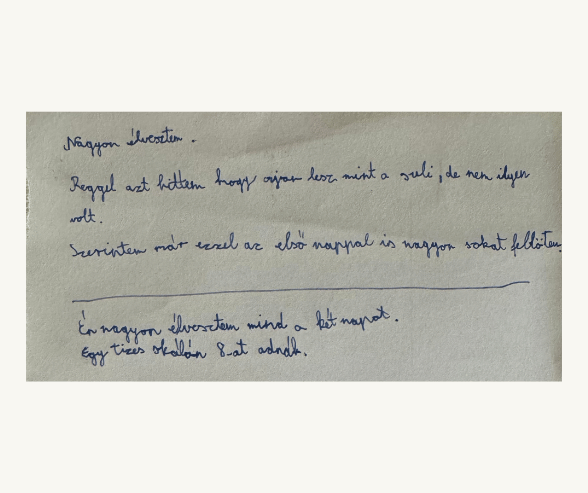 Nagyon élvesztem.
Reggel azt hittem hogy ojan lesz mint a suli, de nem ilyen
volt.
Szerintem már ezzel az első nappal is nagyon sokat fellőtem.
Én nagyon élvesztem mind a két napot.
Egy tizes skálán 8-at adnák.